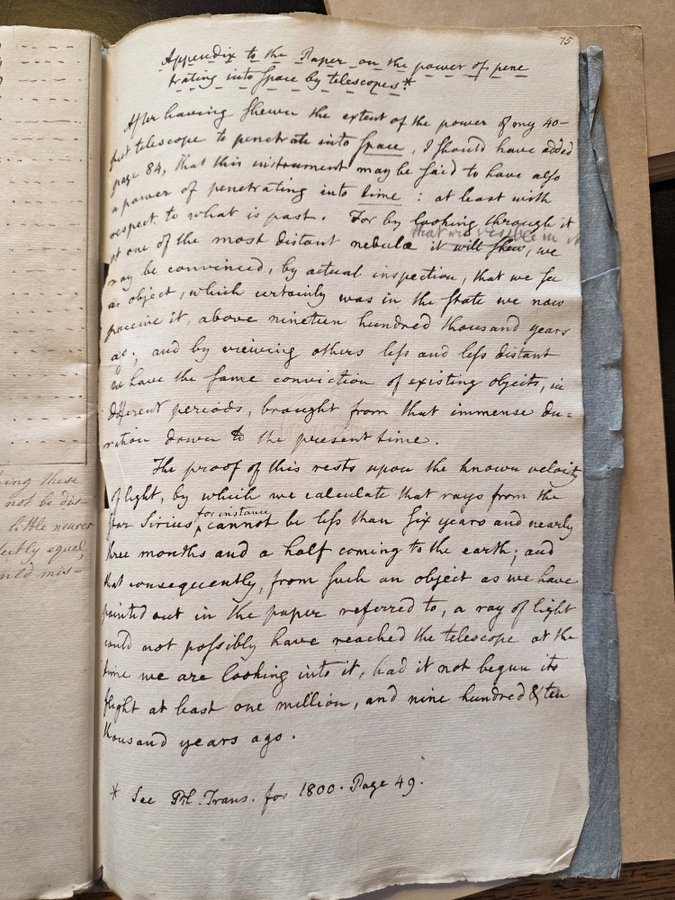 75
Appendix to the Paper on the power of pene
trating into Space by telescopes*
After having shewn the extent of the power of my 40-
feet telescope to penetrate into space, I should have added
page 84, that this instrument may be said to have also
a power of penetrating into time: at least with
respect to what is past. For by looking through it
that was visible in it
at one of the most distant nebulæ it will shew, we
may be convinced, by actual inspection, that we see
an object, which certainly was in the state we now
perceive it, above nineteen hundred thousand years
ago; and by viewing others less and less distant
we have the same conviction of existing objects, in
different periods, brought from that immense du-
ration down to the present time.
The proof of this rests upon the known velocity
of light, by which we calculate that rays from the
for instance
star Sirius, cannot be less than six years and nearly
three months and a half coming to the earth; and
that consequently, from such an object as we have
pointed out in the paper referred to, a ray of light
could not possibly have reached the telescope at the
time we are looking into it, had it not begun its
flight at least one million, and nine hundred & ten
thousand years ago.
* See Phl. Trans. for 1800. Page 49.
ing these
not be dis-
little nearer
fectly equal,
ould mis-